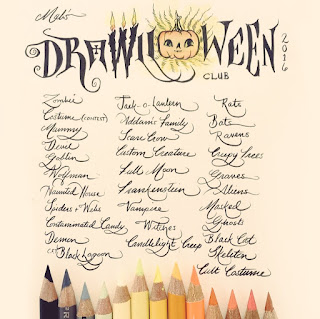 Mab's
DRAWLLOWEEN
2016
CLUB
Zombie
Costume (CONTEST)
Mummy
Devil
Goblin
Wolfman
Haunted House
Spiders + Webs
Contaminated Candy
Demon
Black Lagoon
Jack-o-Lantern
Addams Family
Scare Crow
Custom Creature
Full Moon
Frankenstein
Vampire
Witches
Candlelight Creep
Rats
Bats
Ravens
Creepy Trees
Graves
Aliens
Masked
Ghosts
Black Cat
Skeleton
Cult Costume